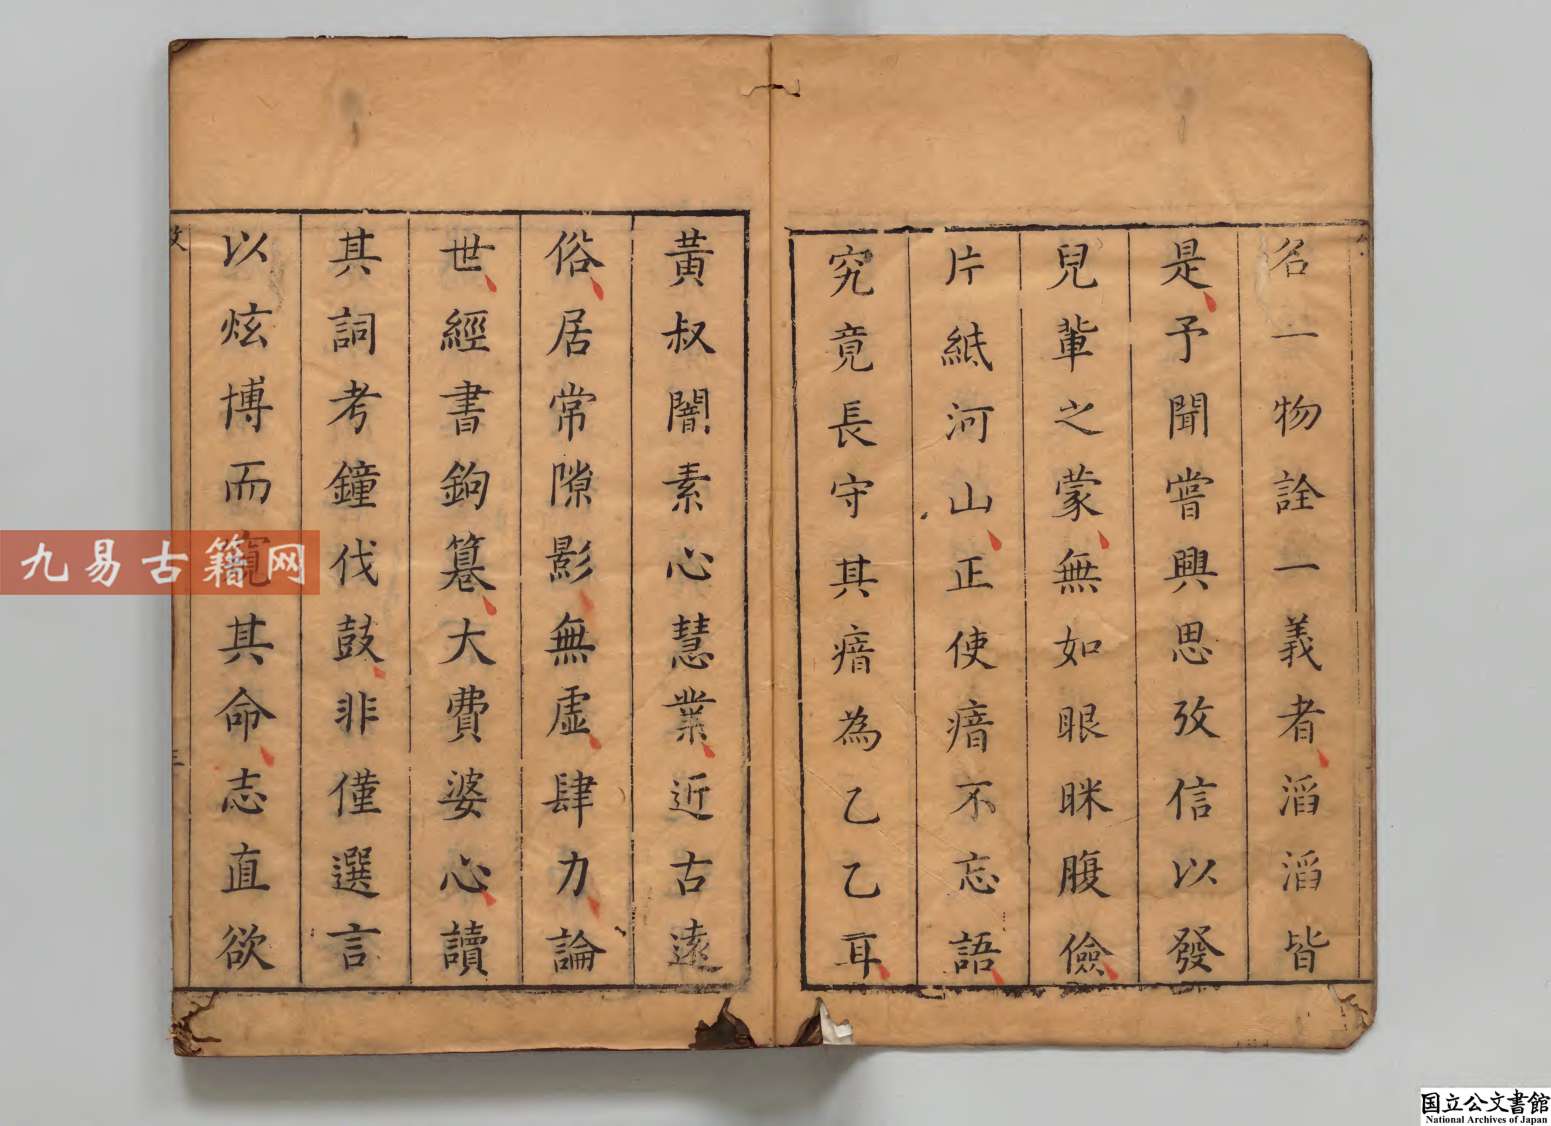 名一物詮一義者滔滔皆
是予聞嘗興思攷信以發
兒輩之蒙無如眼眯腹儉
片紙河山正使瘖不忘語
究竟長守其瘖為乙乙耳
黃叔闇素心慧業近古遠
俗居常隙影無虛肆力論
世經書鉤纂大費婆心讀
其詞考鐘伐鼓非僅選言
以炫博而寬其命志直欲
九易古籍网
国立公文書館
National Archives of Japan